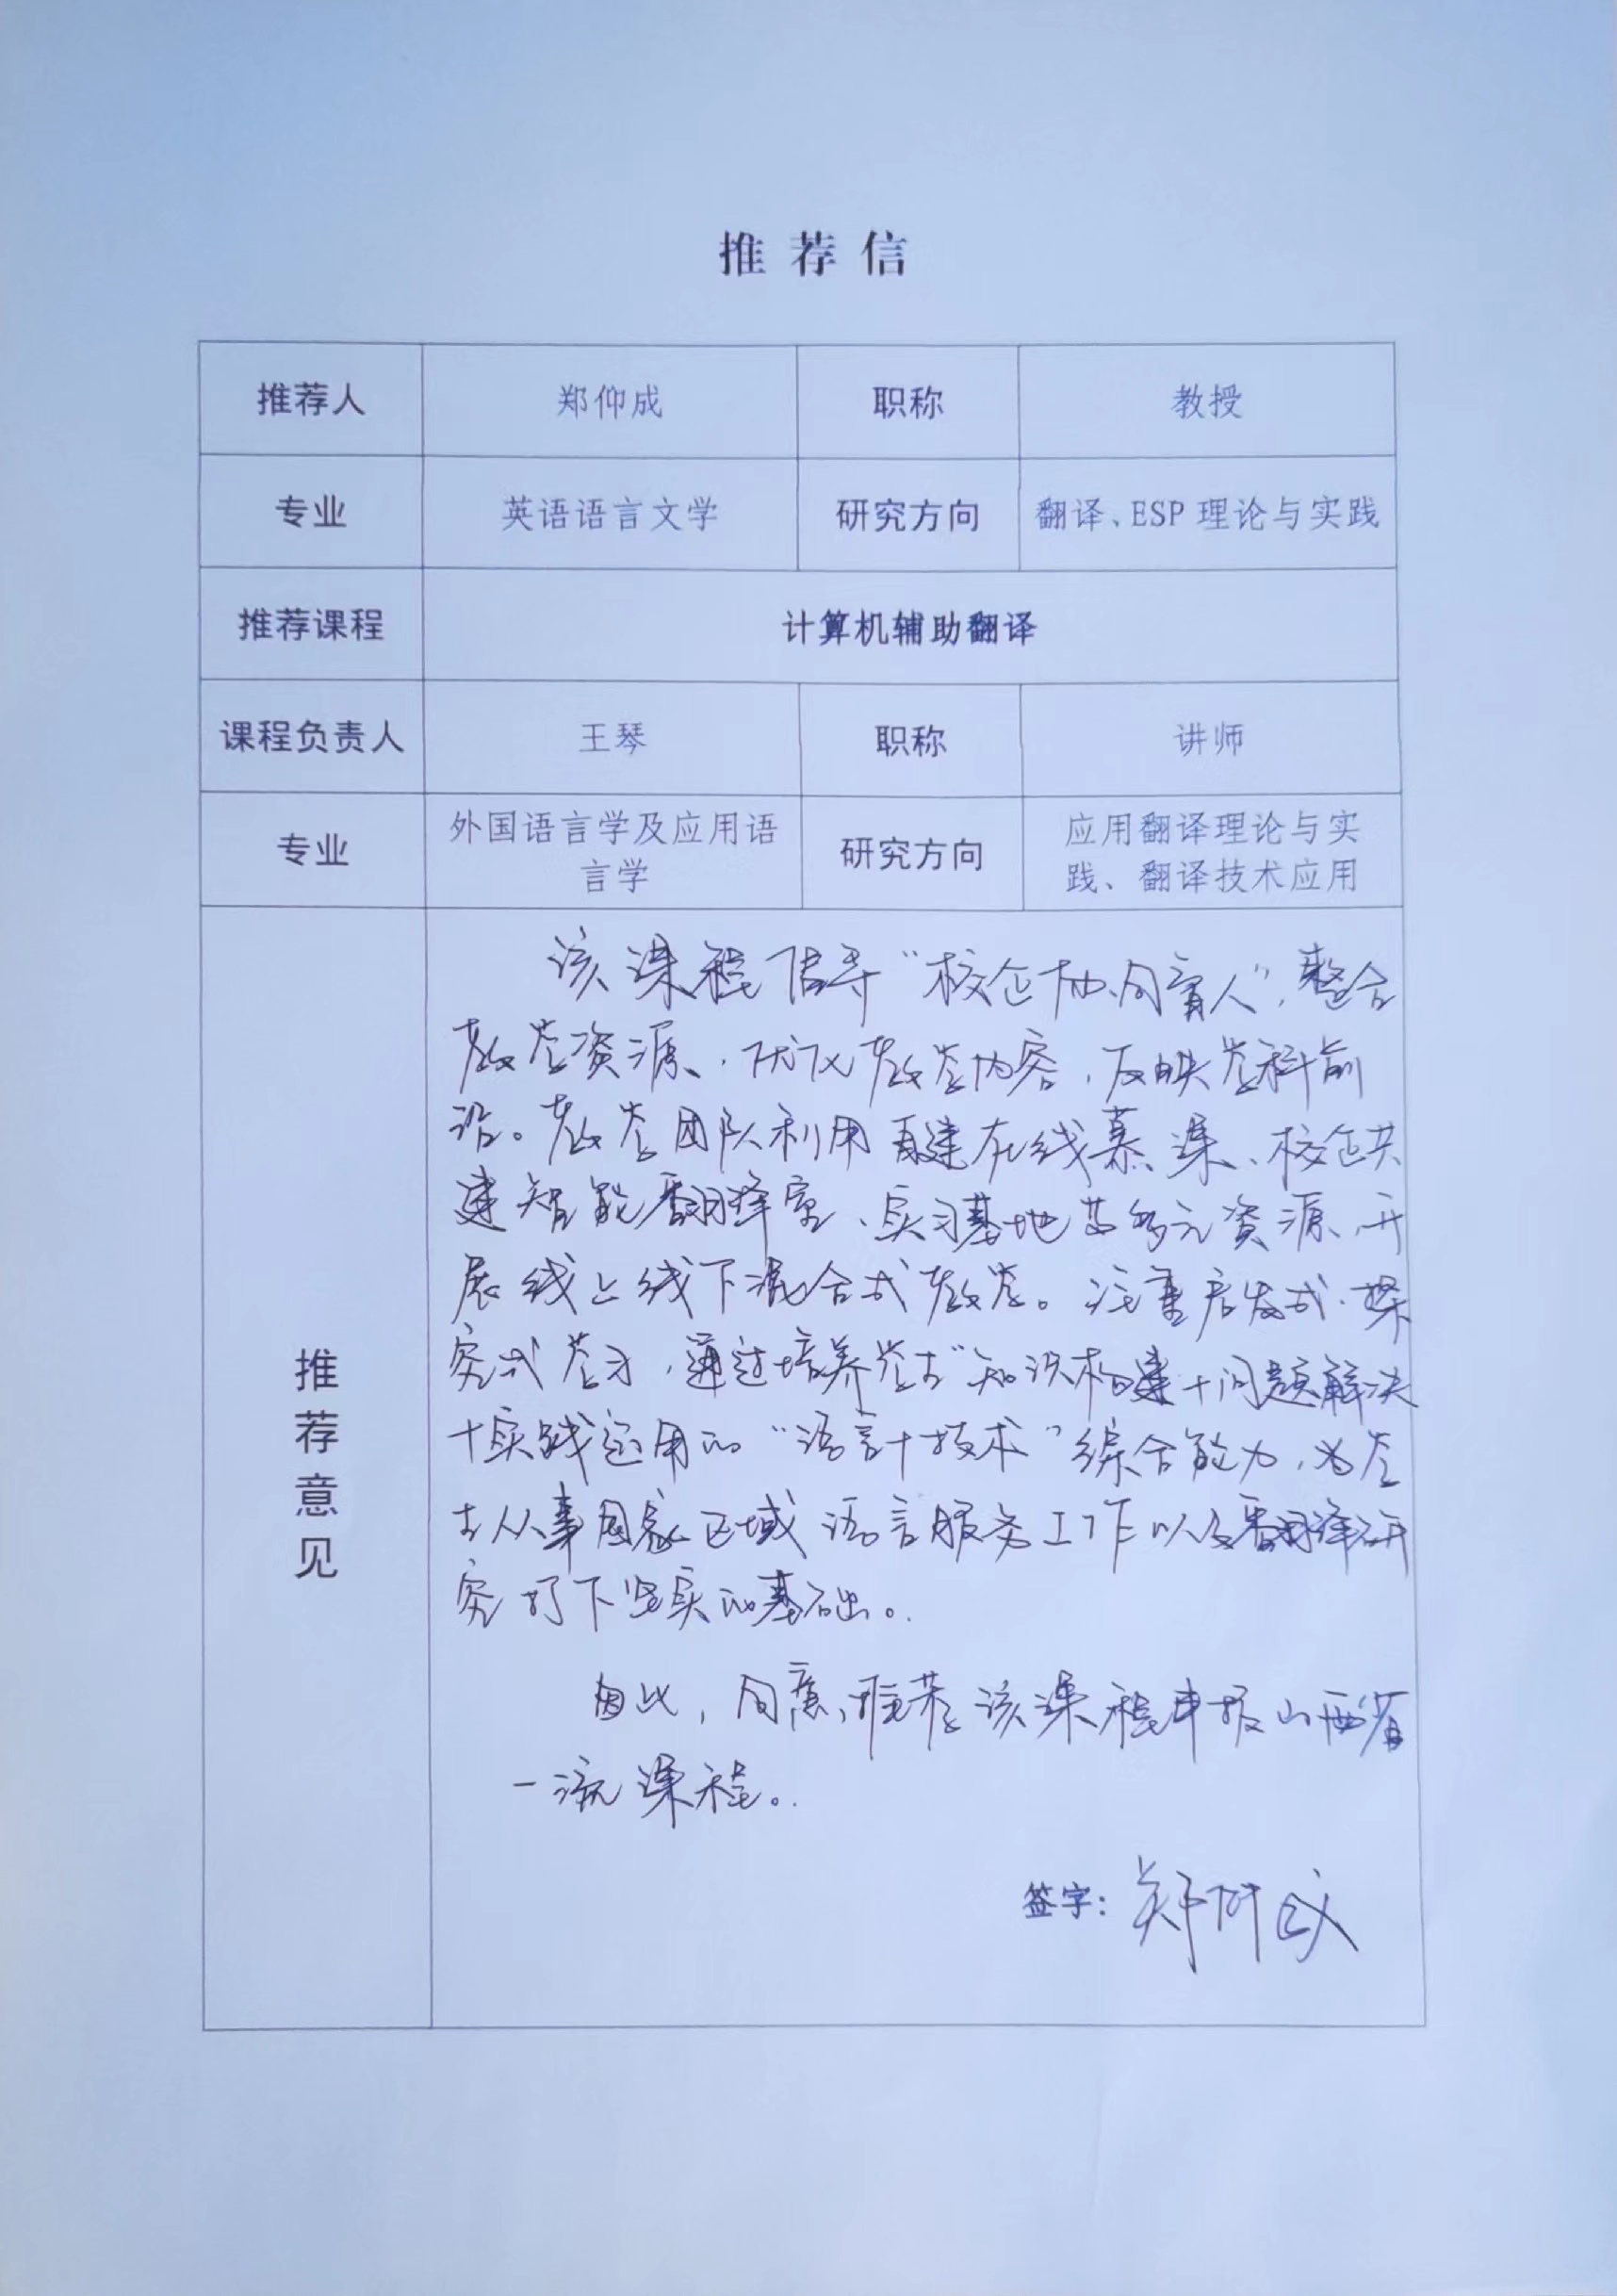 推荐信
推荐人 郑仰成 职称 教授
专业 英语语言文学 研究方向 翻译、ESP 理论与实践
推荐课程 计算机辅助翻译
课程负责人 王琴 职称 讲师
专业 外国语言学及应用语言学 研究方向 应用翻译理论与实践、翻译技术应用
推荐意见
该课程倡导“校企协同育人”,整合
教学资源、优化教学内容,反映学科前
沿。教学团队利用自建在线慕课、校企共
建智能翻译室、实习基地等多元资源,开
展线上线下混合式教学。注重启发式、探
究式学习,通过培养学生“知识构建+问题解决
+实践运用的“语言+技术”综合能力,为学
生从事国家区域语言服务工作以及翻译研
究打下坚实的基础。
因此,同意推荐该课程申报山西省
一流课程。
签字: 郑仰成